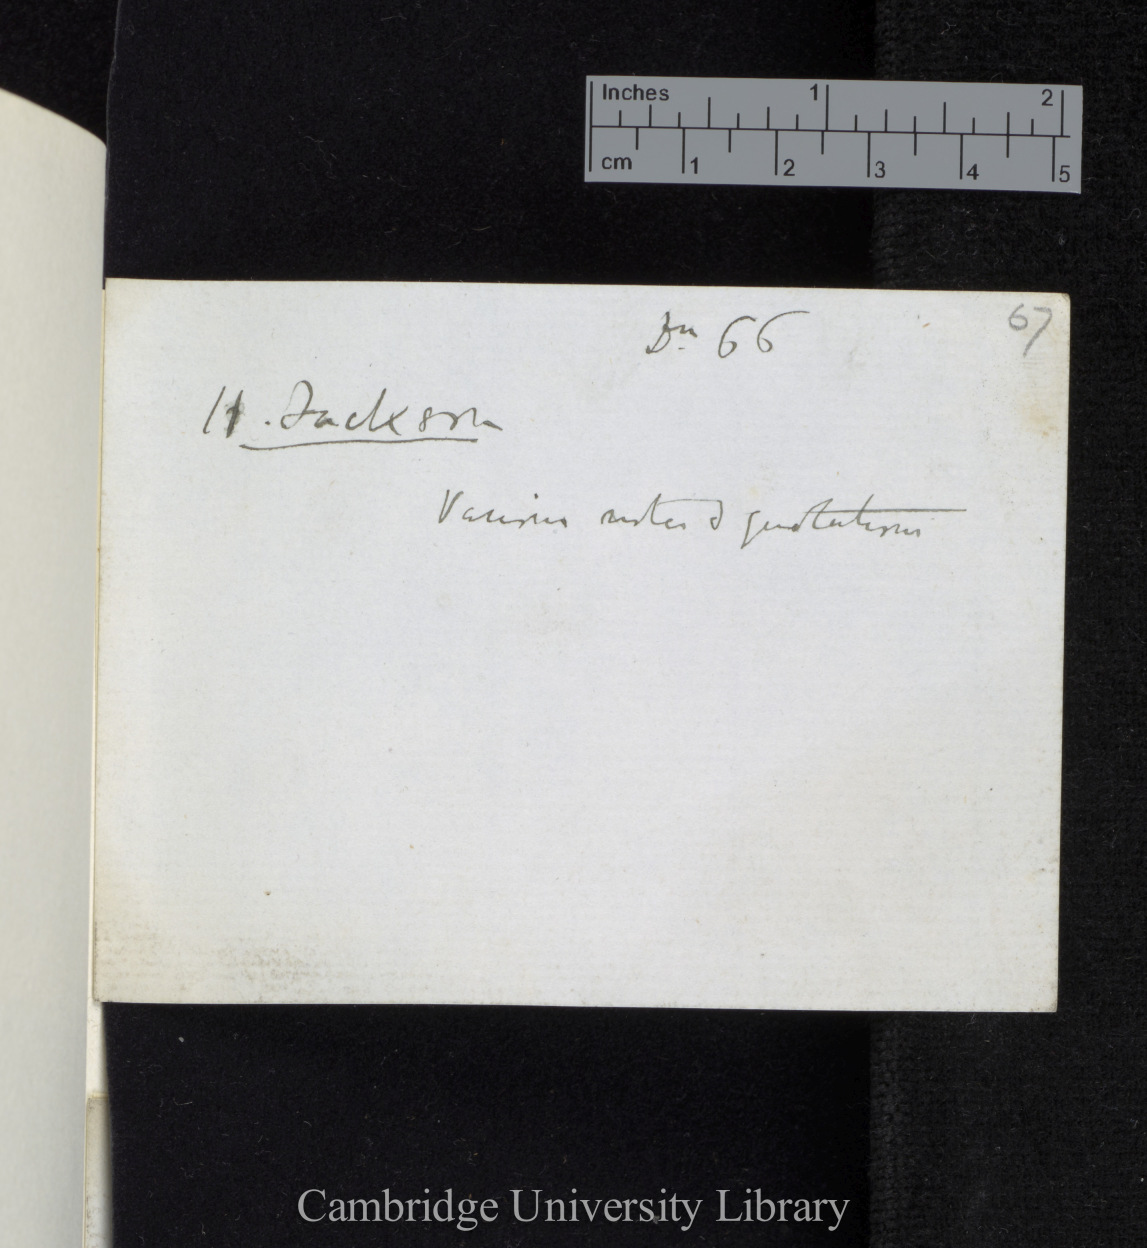 Inches 1 2
cm 1 2 3 4 5
67
66
H. Jackson
Various notes & quotations
Cambridge University Library